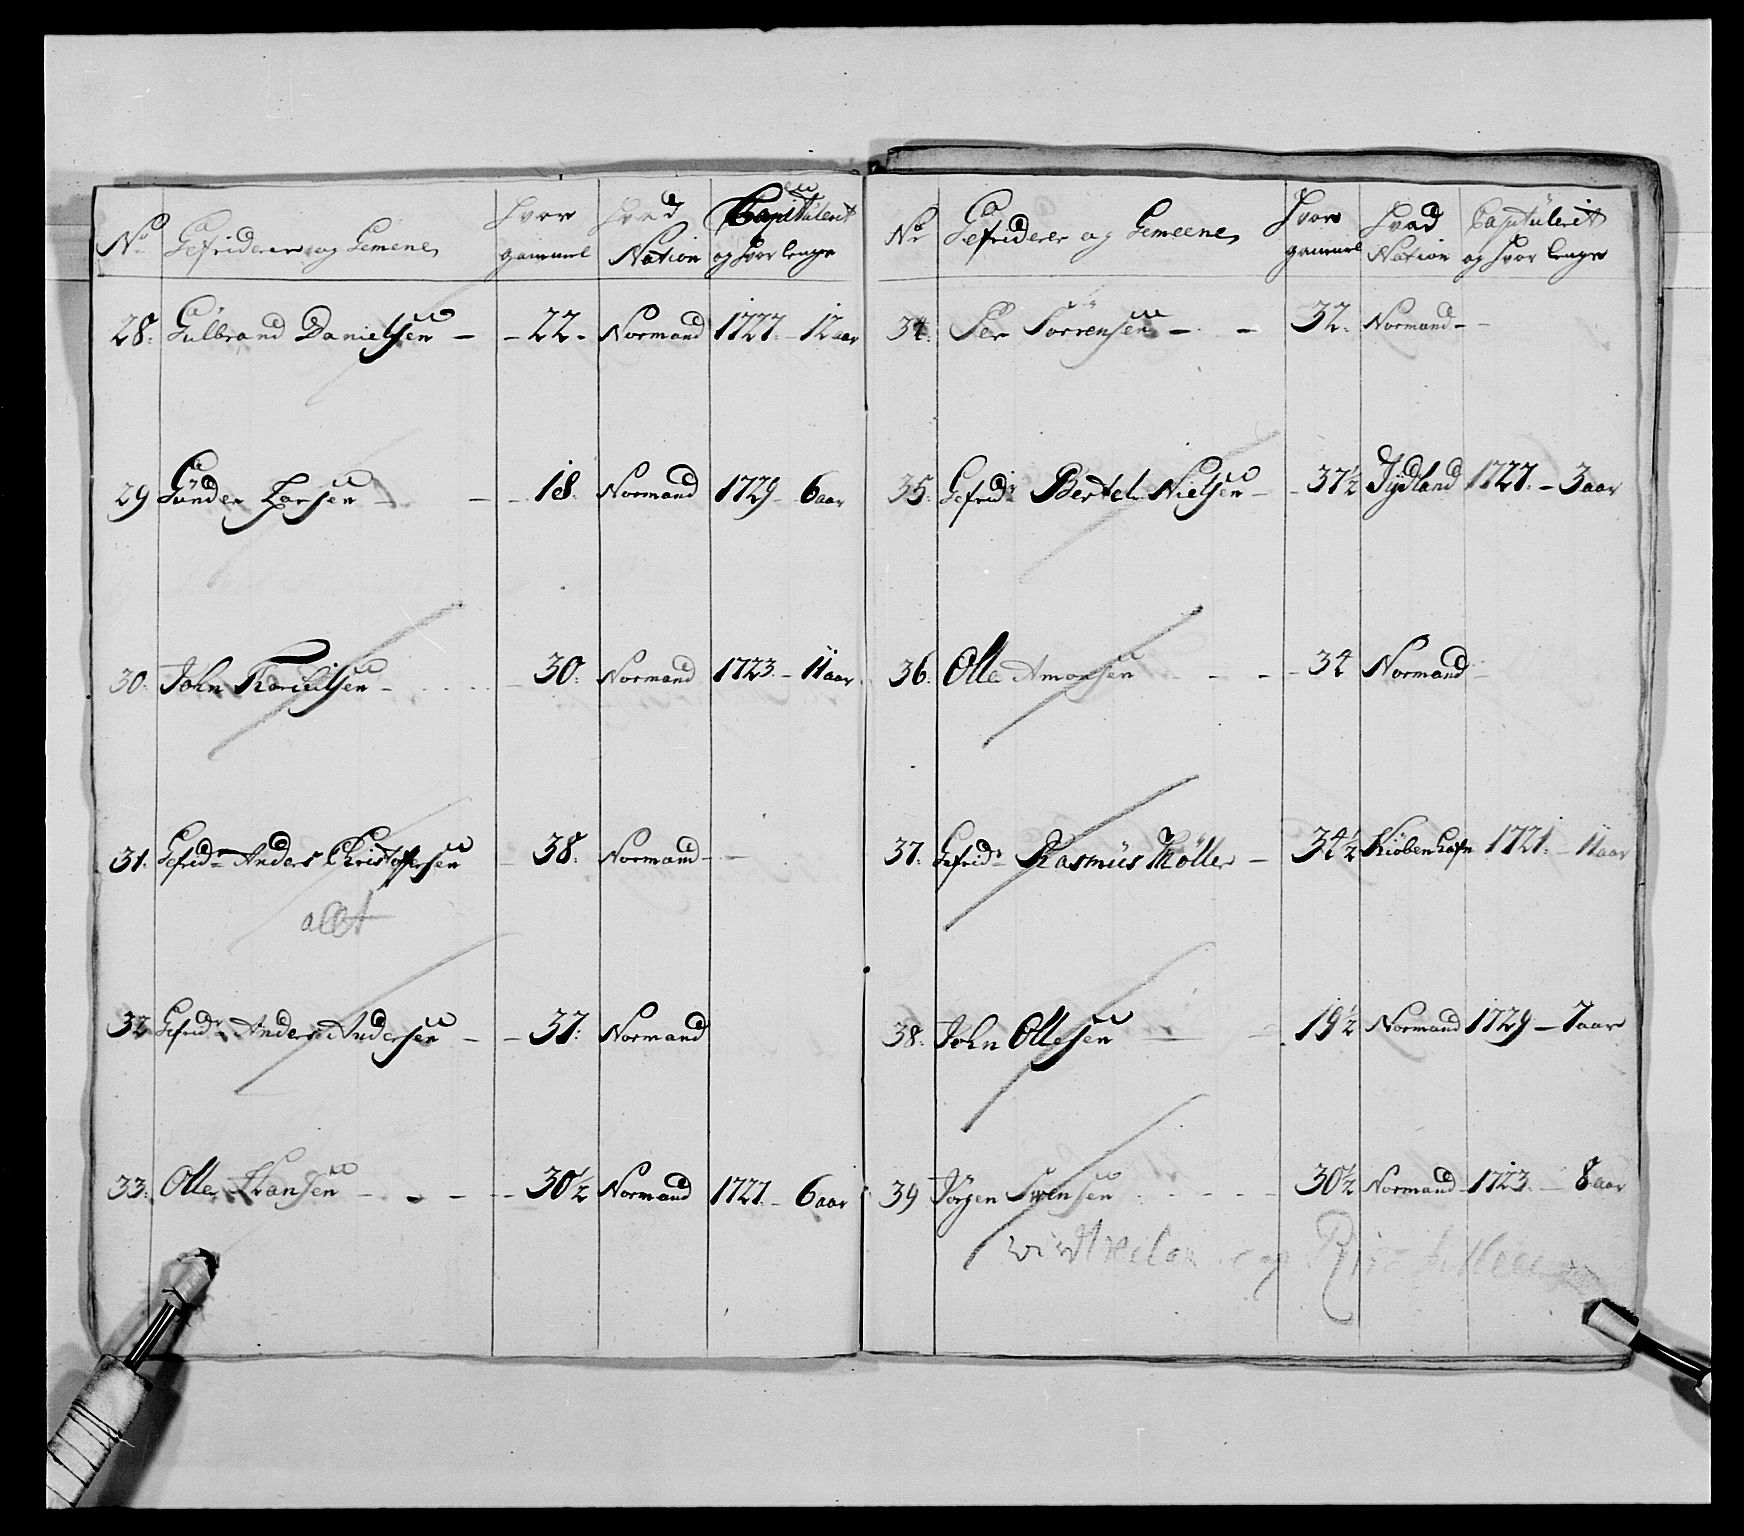 No Gefriderer og Gemene, Hvor gammel Hvad Nation Capitulerit og hvor lenge
28: Gülbrand Danielsen — - 22 - Normand 1727. - 12 aar
29 Günder Larsen - - 18. Normand 1729 - 6 aar
30. John - 30. Normand 1723. - 11 aar
31. Gefrid.r Anders Christoffersen - 38. Normand - -
allt
32 Gefrid.r Anders Andersen - - 37: Normand
33. Olle Hansen - - - 30½ Normand 1727. - 6 aar
Nr Gefriderer og Gemeene, Hvor gammel Hvad Nation Captülerit og hvor lenge
34. Per Sörrensen - - 32. Normand - -
35. Gefrid.r Bertel Nielsen - - 37½ Jydland 1727. - 3 aar
36. Olle Amonsen - - - 34 Normand -
37. Gefrid.r Rasmüs Möller - 34½ Kiöbenhafn 1721. - 11 aar
38. John Ollesen - - 19½ Normand 1729 - 7 aar
39 Jörgen Swensen - - - 30½ Normand 1723. - 8 aar